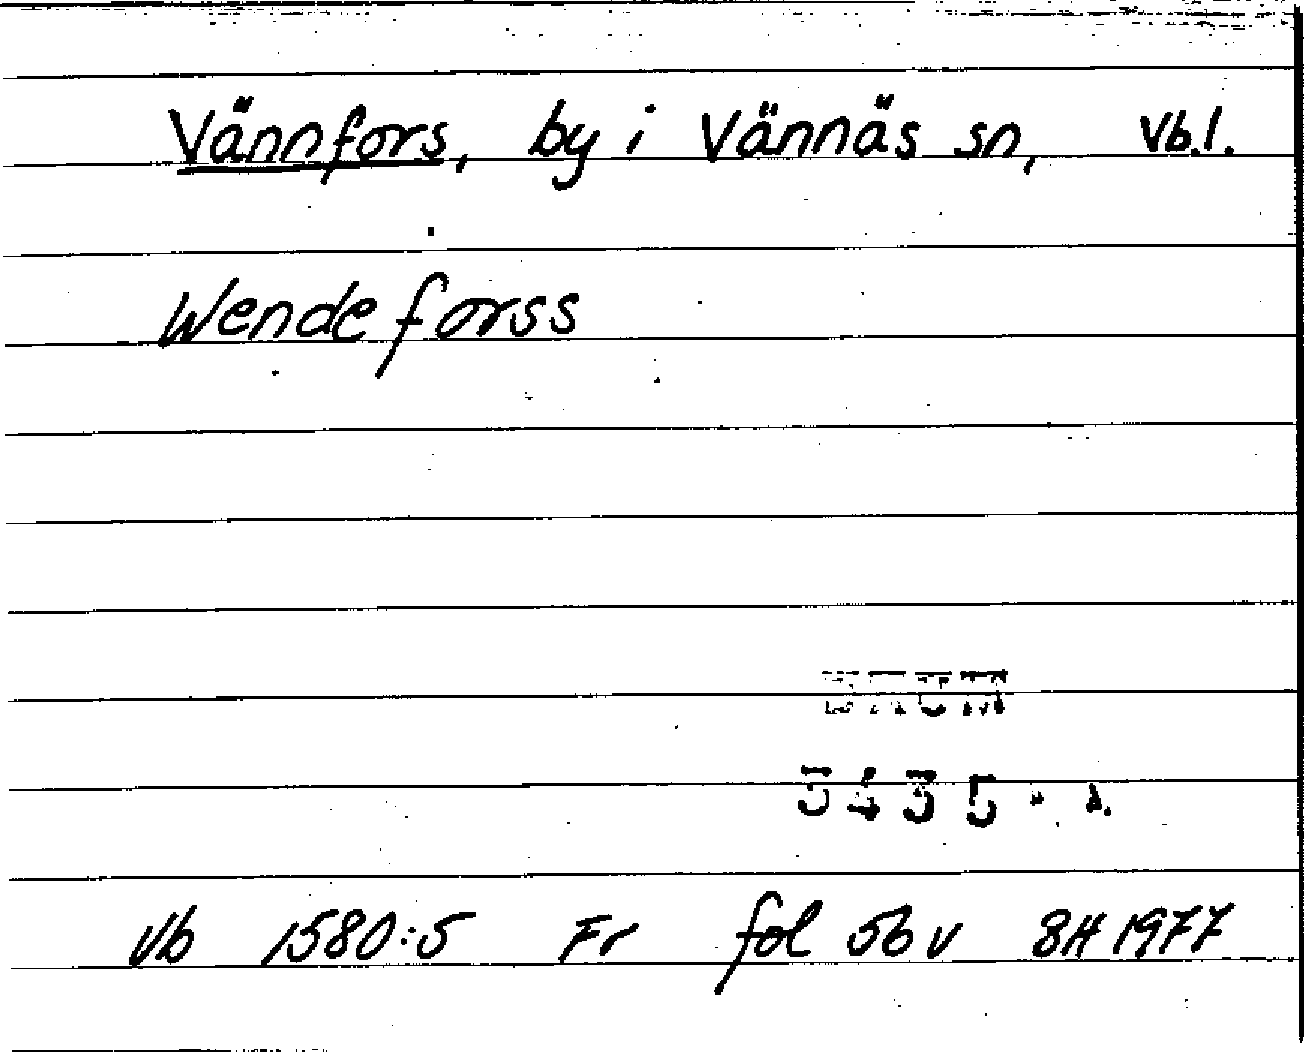 Vännfors, by i Vännäs sn, Vb.l.
Wendeforss
5435
Vb 1580:5 Fr fol 56 v BH 1977